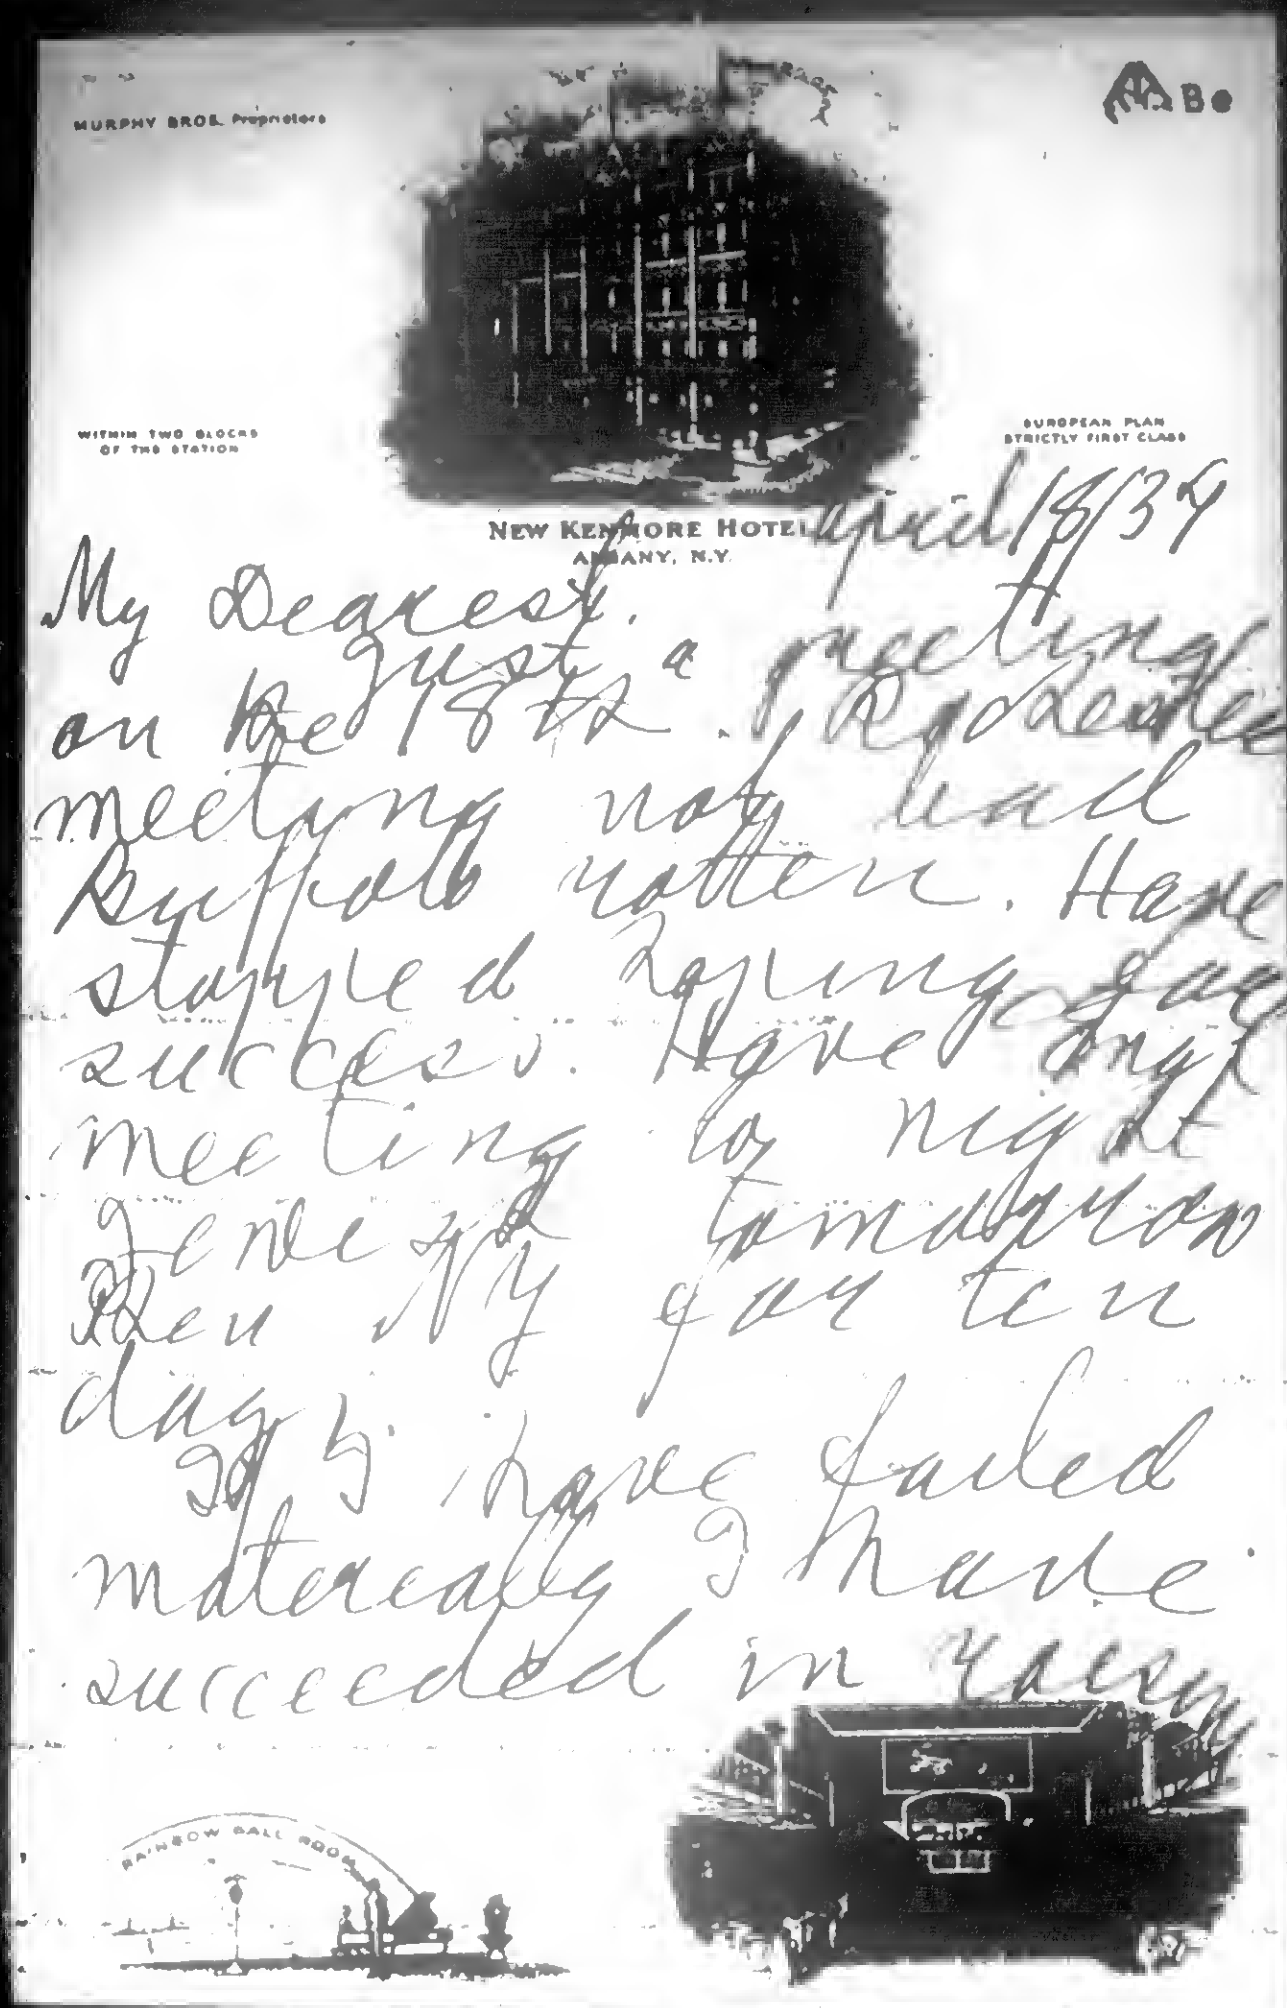 MURPHY BROS. Proprietors
WITHIN TWO BLOCKS
OF THE STATION
EUROPEAN PLAN
STRICTLY FIRST CLASS
NEW KENMORE HOTEL
ALBANY, N.Y.
april 18/34
My Dearest.
Just a greeting
on the 18th. Rochester
meeting not bad
Buffalo rotten. Have
stopped hoping for
success. Have one
meeting to night
tomorrow
Then NY for ten
days.
If I have failed
materially I have
succeeded in
RAINBOW BALL ROOM